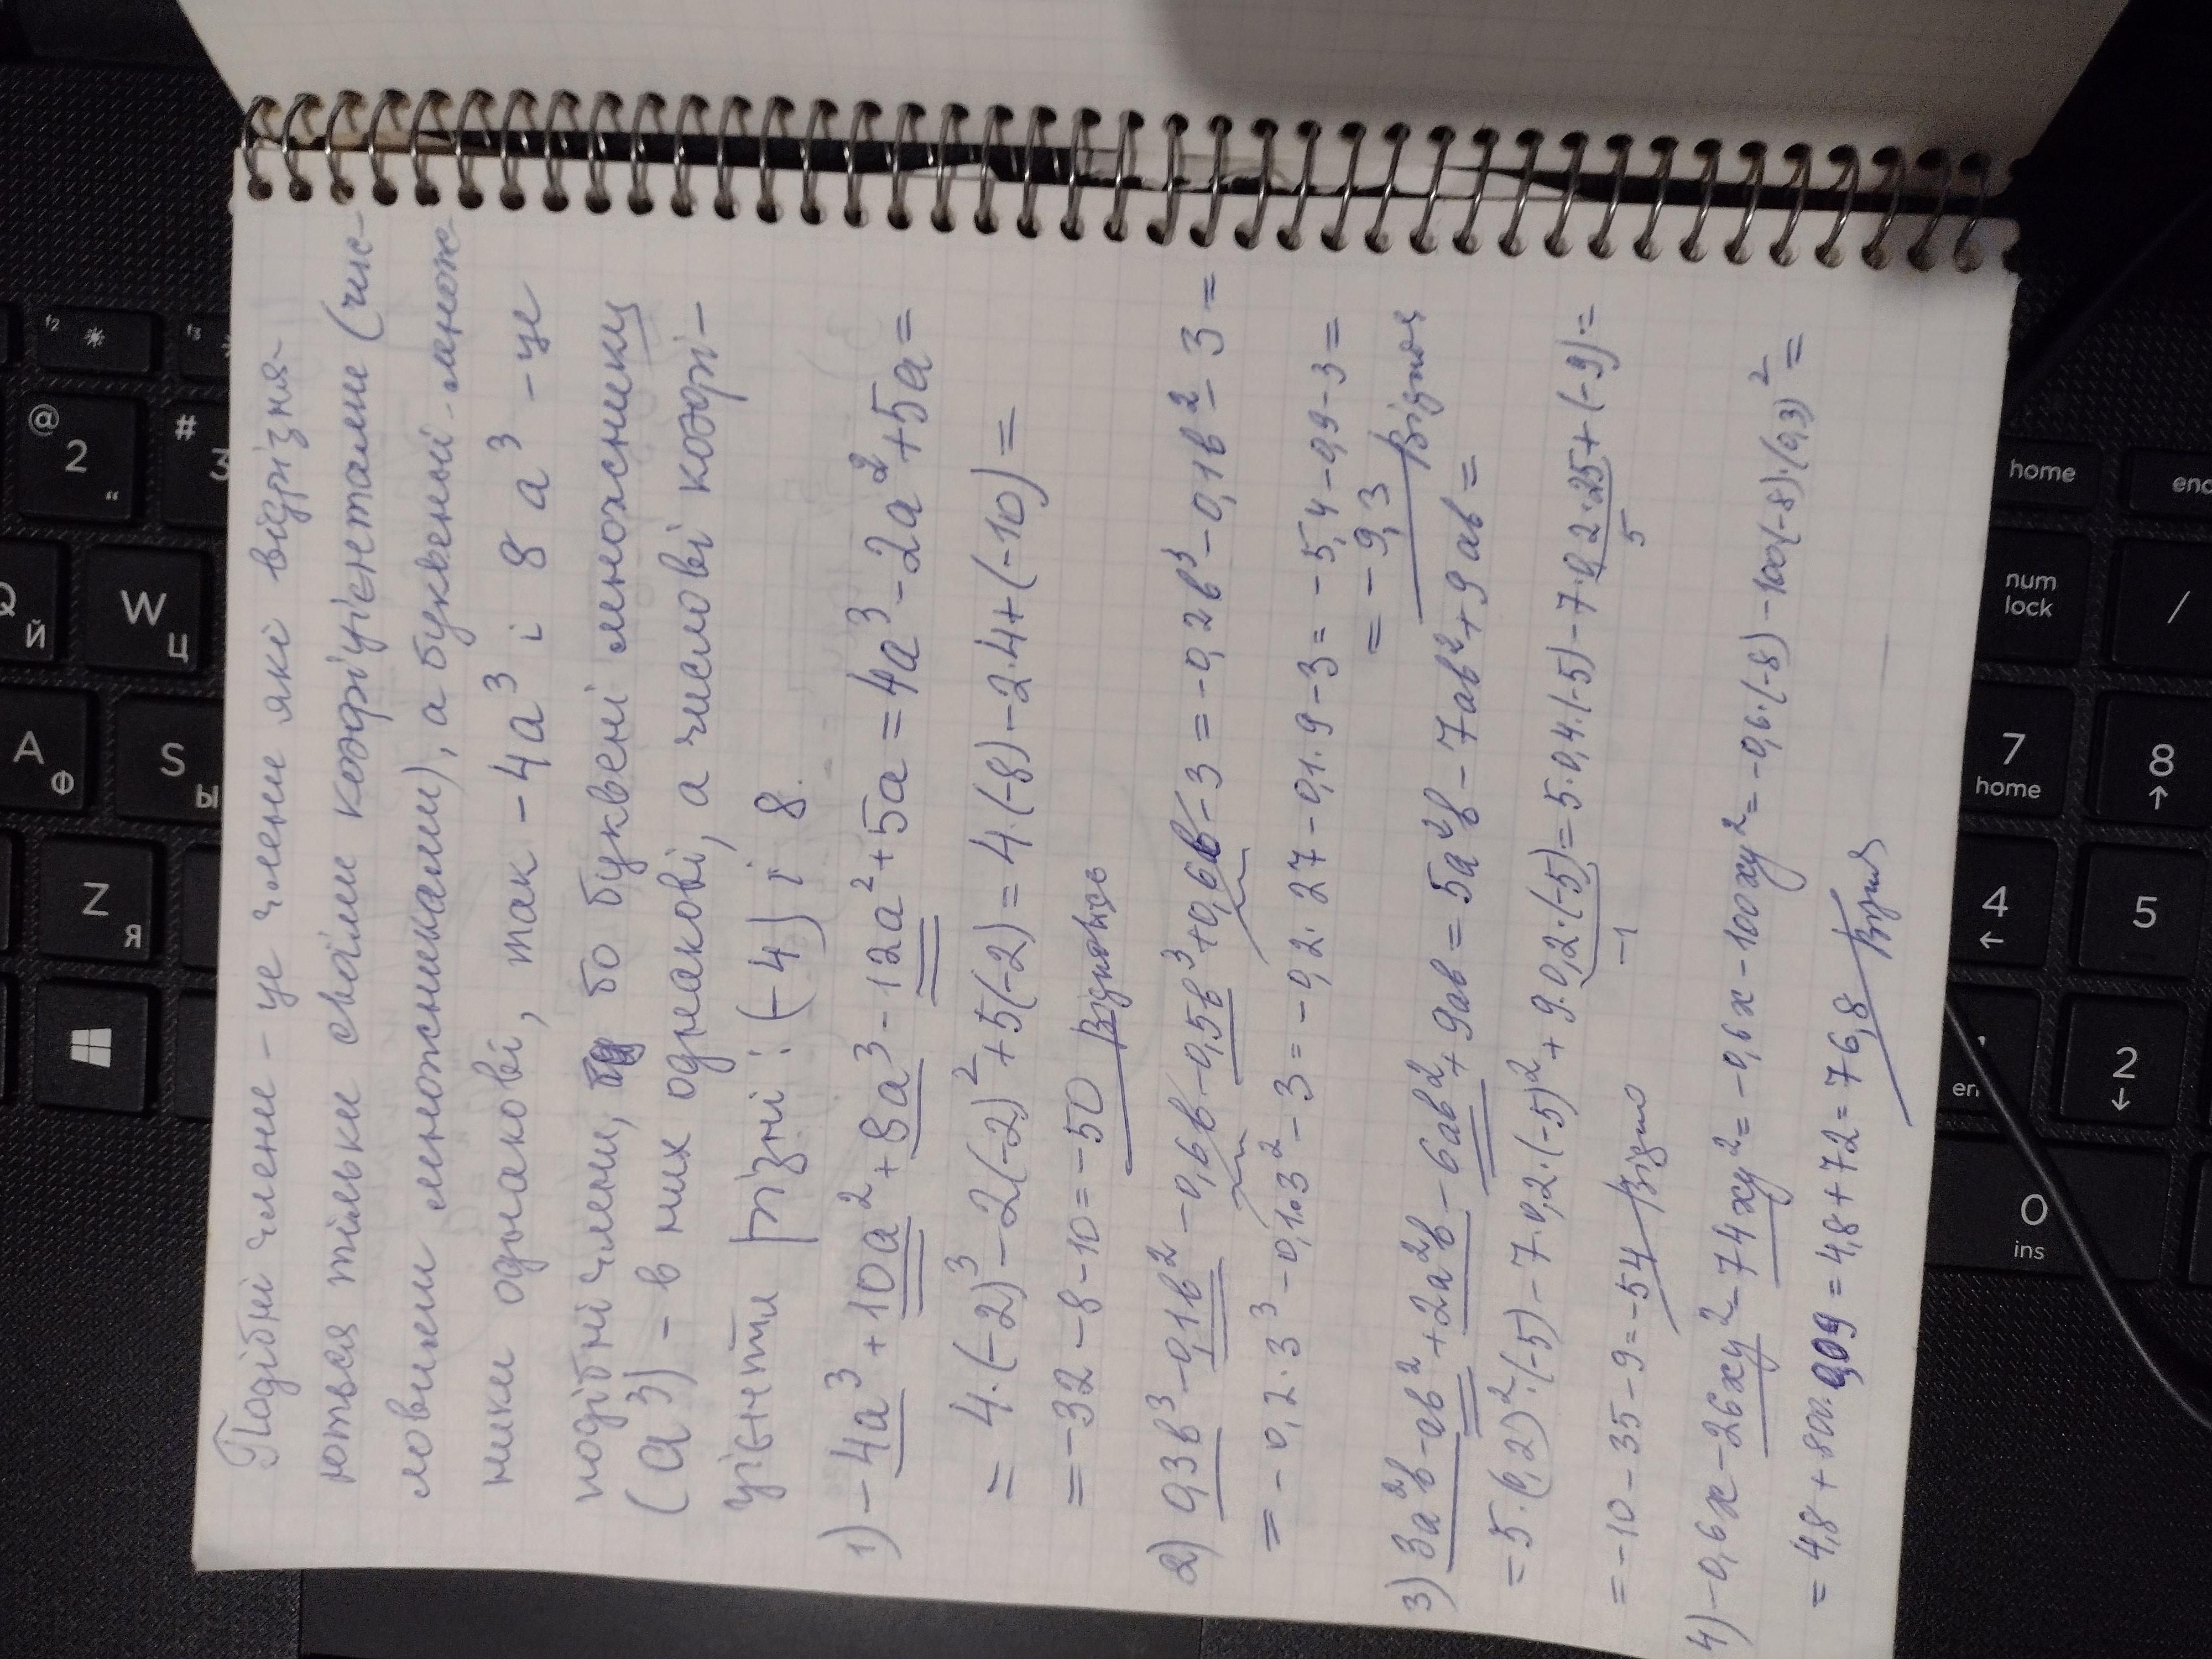 Подібні члени - це члени які відрізня-
ються тільки своїми коефіцієнтами (чис-
ловими множниками), а буквенні множ-
ники однакові, так - 4a³ і 8a³ - це
подібні члени, бо буквені множники
(a³) - в них однакові, а числові коефі-
цієнти різні: (-4) і 8.
1) -4a³ + 10a² + 8a³ - 12a² + 5a = 4a³ - 2a² + 5a =
= 4·(-2)³ - 2(-2)² + 5(-2) = 4·(-8) - 2·4 + (-10) =
= -32 - 8 - 10 = -50 Відповідь
2) 0,3b³ - 0,1b² - 0,6b - 0,5b³ + 0,6b - 3 = -0,2b³ - 0,1b² - 3 =
= -0,2·3³ - 0,1·3² - 3 = -0,2·27 - 0,1·9 - 3 = -5,4 - 0,9 - 3 =
= -9,3
3) 3a²b - ab² + 2a²b - 6ab² + 9ab = 5a²b - 7ab² + 9ab =
= 5·(0,2)²·(-5) - 7·0,2·(-5)² + 9·0,2·(-5) = 5·0,4·(-5) - 7·0,2·25 + (-9) =
-1 5
= -10 - 35 - 9 = -54
4) -0,6x - 26xy² - 74xy² = -0,6x - 100xy² = -0,6·(-8) - 100(-8)·(0,3)² =
= 4,8 + 800·0,09 = 4,8 + 72 = 76,8
home
end
num
lock
7
home
8
4
5
2
0
ins
/
@
2
“
#
3
f2
f3
Й
W
Ц
A
Ф
S
Ы
Z
Я